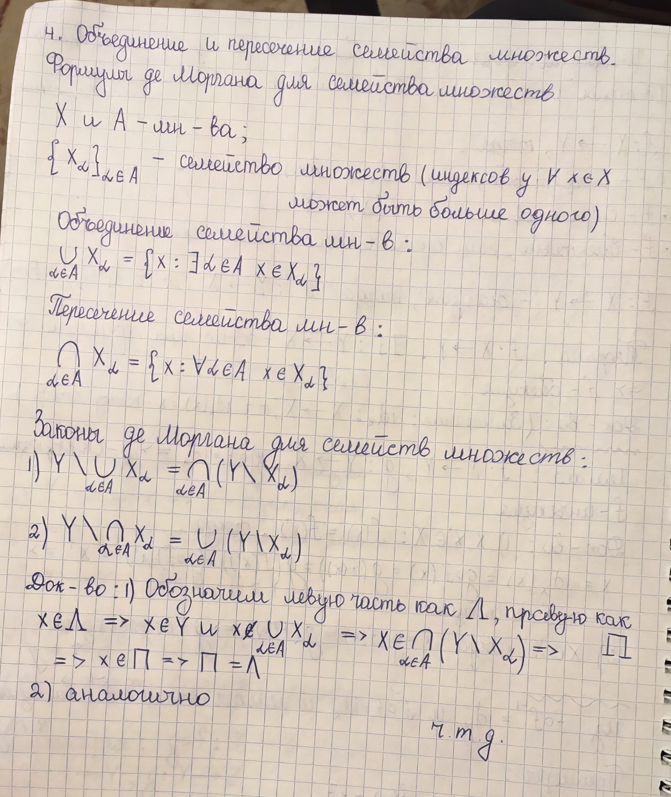 4. Объединение и пересечение семейства множеств.
Формулы де Моргана для семейства множеств
X и A – мн – ва;
{X_α}_{α∈A} – семейство множеств (индексов у ∀ x∈X
может быть больше одного)
Объединение семейства мн – в :
∪_{α∈A} X_α = {x : ∃ α∈A x∈X_α}
Пересечение семейства мн – в :
∩_{α∈A} X_α = {x : ∀α∈A x∈X_α}
Законы де Моргана для семейств множеств :
1) Y \ ∪_{α∈A} X_α = ∩_{α∈A} (Y \ X_α)
2) Y \ ∩_{α∈A} X_α = ∪_{α∈A} (Y \ X_α)
Док – во : 1) Обозначим левую часть как Л, правую как
x∈Л => x∈Y и x∉ ∪_{α∈A} X_α => x∈ ∩_{α∈A} (Y \ X_α) => П
=> x∈П => П = Л
2) аналоично
ч.т.д.